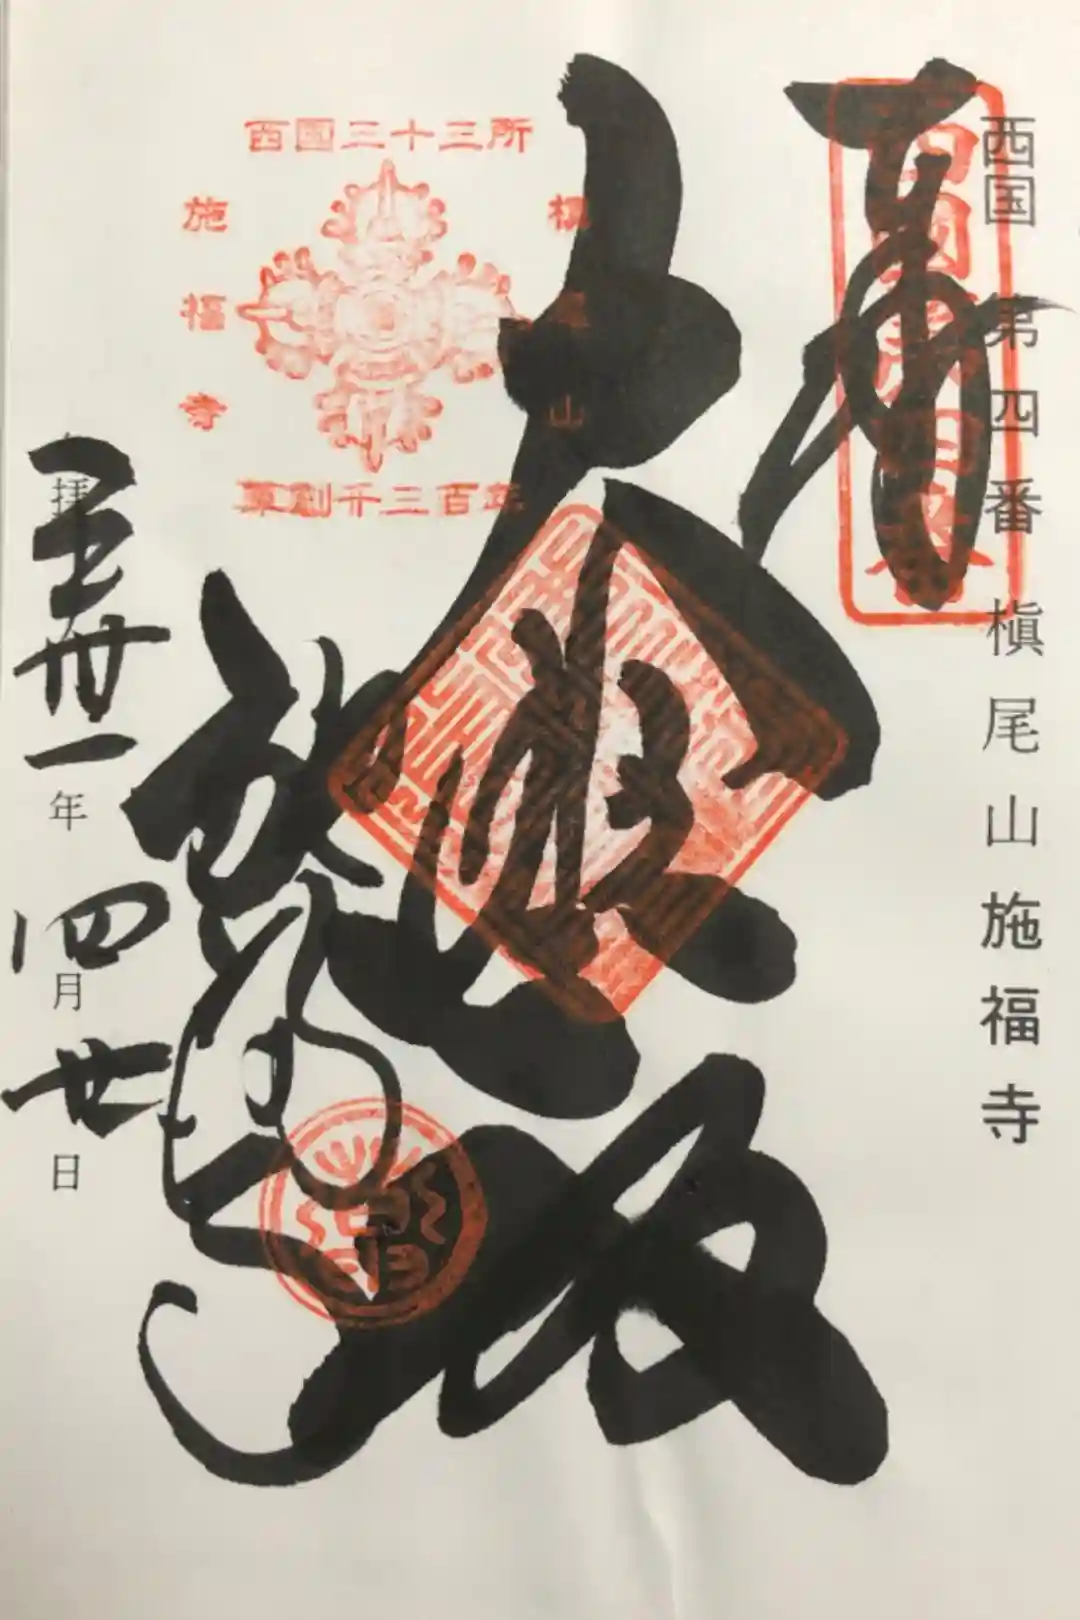 西国 第四番 槇尾山施福寺
奉
西國第四番
大悲殿
西国三十三所
槇尾山
施福寺
草創千三百年
施福寺
拝
卅一年四月廿日